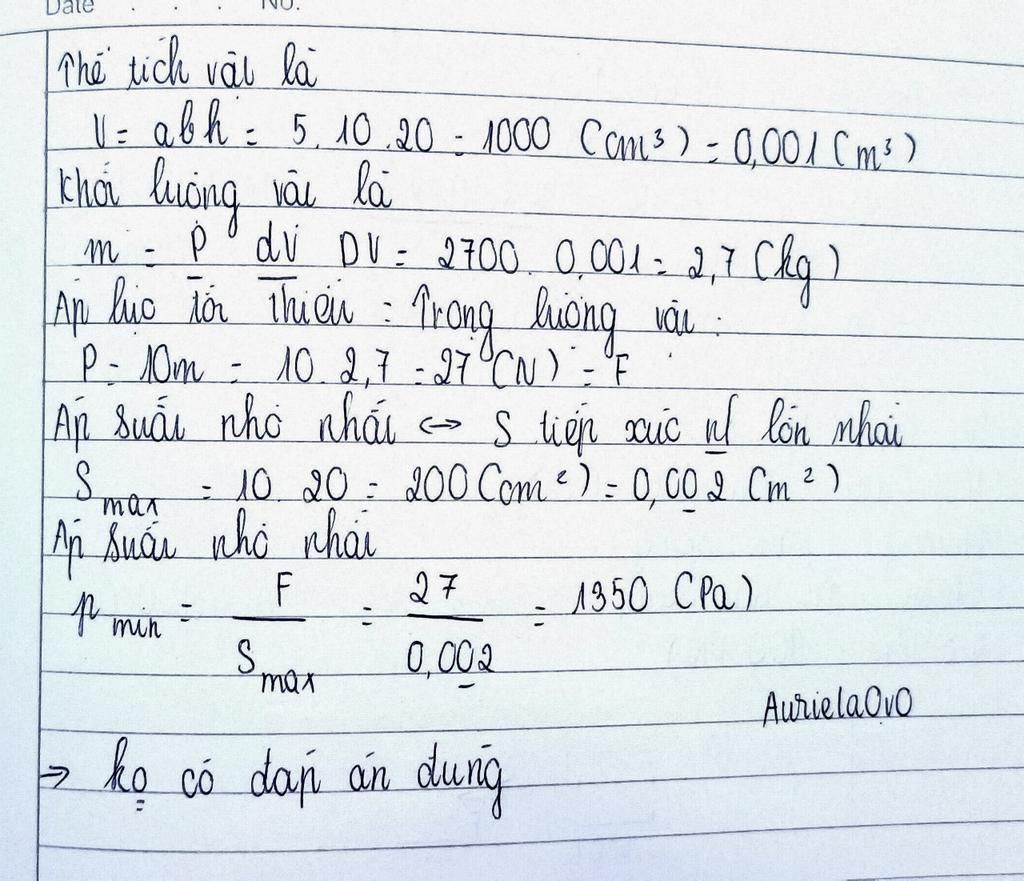 Date . . . . No.
Thể tích vật là
V = abh = 5.10.20 = 1000 (cm³) = 0,001 (m³)
Khối lượng vật là
m = P dV DV = 2700. 0,001 = 2,7 (kg)
Áp lực tối thiểu = Trọng lượng vật:
P = 10m = 10. 2,7 = 27 (N) = F
Áp suất nhỏ nhất ↔ S tiếp xúc lớn nhất
S max = 10. 20 = 200 (cm²) = 0,002 (m²)
Áp suất nhỏ nhất
p min = F / S max = 27 / 0,002 = 1350 (Pa)
AurielaOvO
→ ko có đáp án đúng